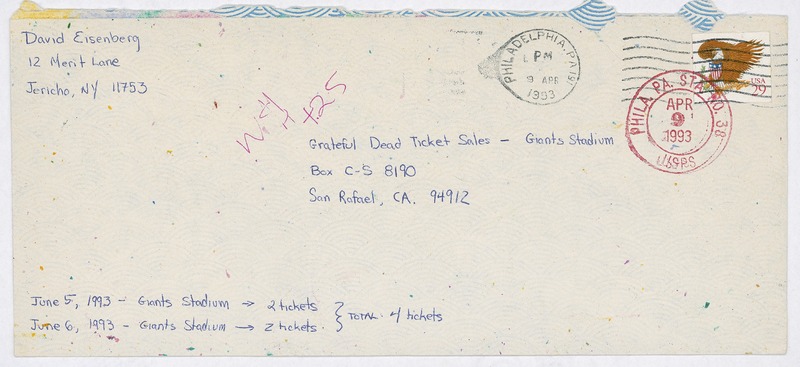 David Eisenberg
12 Merit Lane
Jericho, NY 11753
PHILADELPHIA, PA 191
PM
9 APR
1993
USA
29
PHILA. PA. STA. NO. 38
APR
9
1993
USPS
Grateful Dead Ticket Sales - Giants Stadium
Box C-S 8190
San Rafael, CA. 94912
June 5, 1993 - Giants Stadium → 2 tickets
June 6, 1993 - Giants Stadium → 2 tickets
} TOTAL 4 tickets